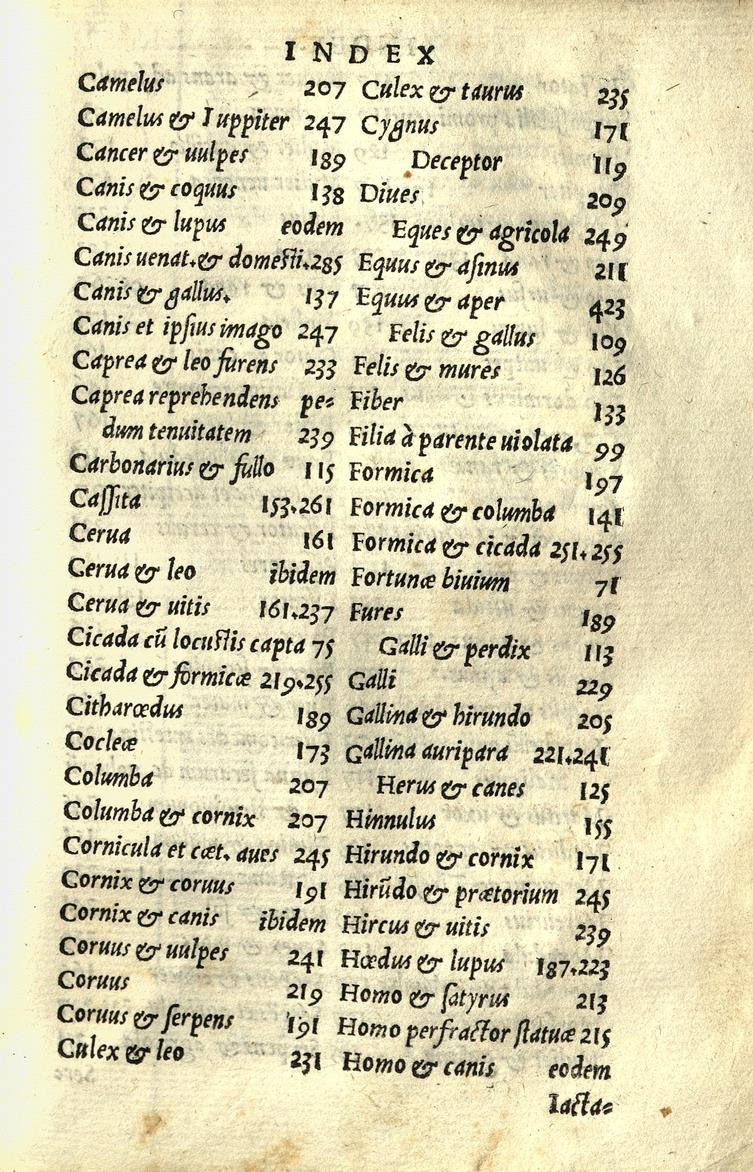 INDEX
Camelus 207
Camelus & Iuppiter 247
Cancer & uulpes 189
Canis & coquus 138
Canis & lupus eodem
Canis uenat.& domesti.285
Canis & gallus. 137
Canis et ipsius imago 247
Caprea & leo furens 233
Caprea reprehendens pe=
dum tenuitatem 239
Carbonarius & fullo 115
Cassita 153.261
Cerua 161
Cerua & leo ibidem
Cerua & uitis 161.237
Cicada cū locustis capta 75
Cicada & formicæ 219.255
Citharœdus 189
Cocleæ 173
Columba 207
Columba & cornix 207
Cornicula et cæt. aues 245
Cornix & coruus 191
Cornix & canis ibidem
Coruus & uulpes 241
Coruus 219
Coruus & serpens 191
Culex & leo 231
Culex & taurus 235
Cygnus 171
Deceptor 119
Diues 209
Eques & agricola 249
Equus & asinus 211
Equus & aper 423
Felis & gallus 109
Felis & mures 126
Fiber 133
Filia à parente uiolata 99
Formica 197
Formica & columba 141
Formica & cicada 251.255
Fortunæ biuium 71
Fures 189
Galli & perdix 113
Galli 229
Gallina & hirundo 205
Gallina auripara 221.241
Herus & canes 125
Hinnulus 155
Hirundo & cornix 171
Hirūdo & prætorium 245
Hircus & uitis 239
Hœdus & lupus 187.223
Homo & satyrus 213
Homo perfractor statuæ 215
Homo & canis eodem
Iacta=